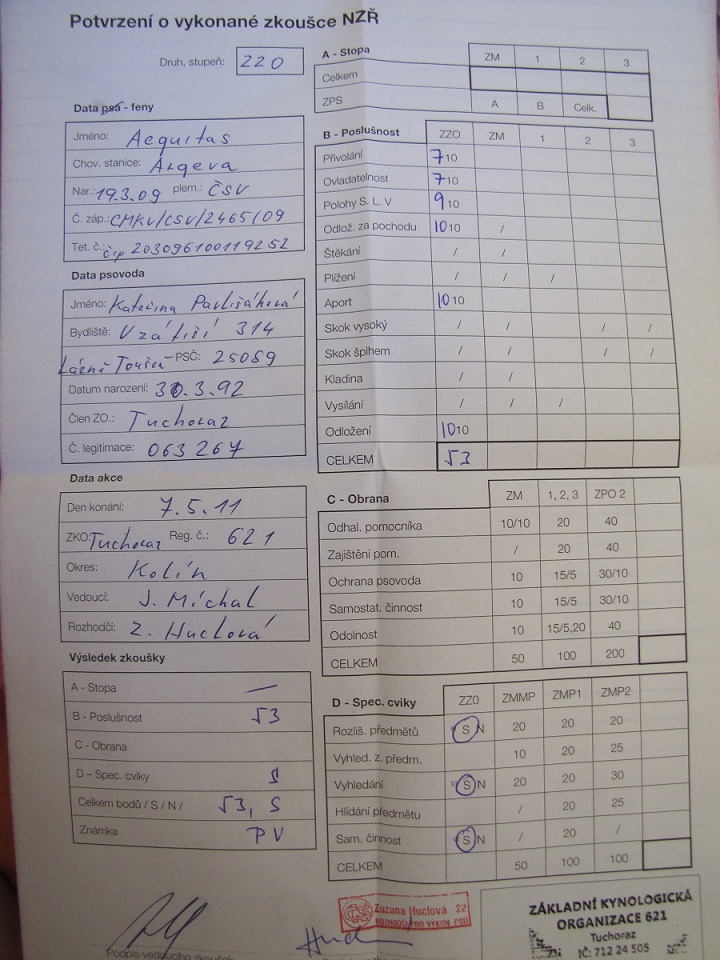 Potvrzení o vykonané zkoušce NZŘ
Druh, stupeň: ZZO
Data psa - feny
Jméno: Aequitas
Chov. stanice: Argeva
Nar.: 19.3.09 plem.: ČSV
Č. záp.: CMKU/CSV/2465/09
Tet. č.: čip 203096100119252
Data psovoda
Jméno: Kateřina Pavlišáková
Bydliště: V zátiší 314
Lázně Toušeň PSČ: 25089
Datum narození: 30.3.92
Člen ZO.: Tuchoraz
Č. legitimace: 063267
Data akce
Den konání: 7.5.11
ZKO: Tuchoraz Reg. č.: 621
Okres: Kolín
Vedoucí: J. Míchal
Rozhodčí: Z. Huclová
Výsledek zkoušky
A - Stopa —
B - Poslušnost 53
C - Obrana
D – Spec. cviky S
Celkem bodů / S / N / 53, S
Známka PV
Podpis vedoucího zkoušek
A - Stopa ZM 1 2 3
Celkem
ZPS A B Celk.
B - Poslušnost ZZO ZM 1 2 3
Přivolání 7 10
Ovladatelnost 7 10
Polohy S. L. V 9 10
Odlož. za pochodu 10 10 /
Štěkání / /
Plížení / / /
Aport 10 10
Skok vysoký / / / /
Skok šplhem / / / /
Kladina / /
Vysílání / / /
Odložení 10 10
CELKEM 53
C - Obrana ZM 1, 2, 3 ZPO 2
Odhal. pomocníka 10/10 20 40
Zajištění pom. / 20 40
Ochrana psovoda 10 15/5 30/10
Samostat. činnost 10 15/5 30/10
Odolnost 10 15/5,20 40
CELKEM 50 100 200
D - Spec. cviky ZZ0 ZMMP ZMP1 ZMP2
Rozliš. předmětů S N 20 20 20
Vyhled. z. předm. 10 20 25
Vyhledání S N 20 20 30
Hlídání předmětu / 20 25
Sam. činnost S N / 20 /
CELKEM 50 100 100
Zuzana Huclová 22
ROZHODČÍ PRO VÝKON PSŮ
ZÁKLADNÍ KYNOLOGICKÁ
ORGANIZACE 621
Tuchoraz
IČ: 712 24 505